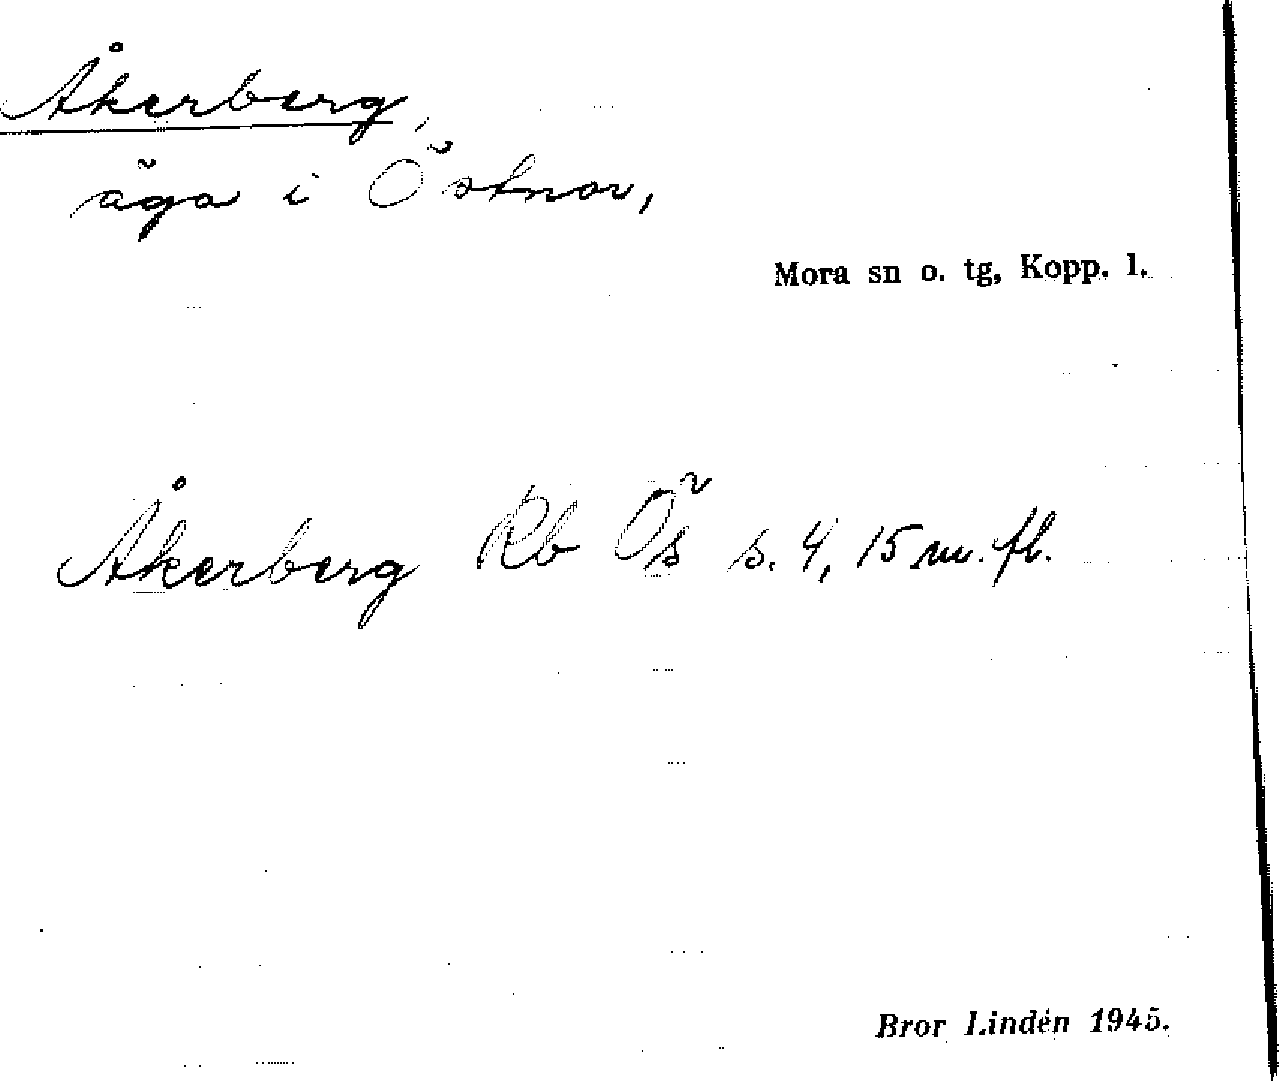 Åkerberg,
äga i Östnor,
Mora sn o. tg, Kopp. l.
Åkerberg Rb Ös s. 4, 15 m. fl.
Bror Lindén 1945.